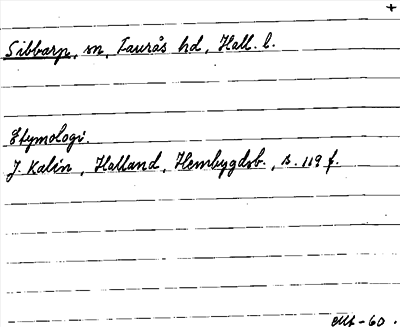 +
Sibbarp, sn, Faurås hd, Hall. l.
Etymologi.
J. Kalén, Halland, Hembygdsb., s. 119 f.
-60.